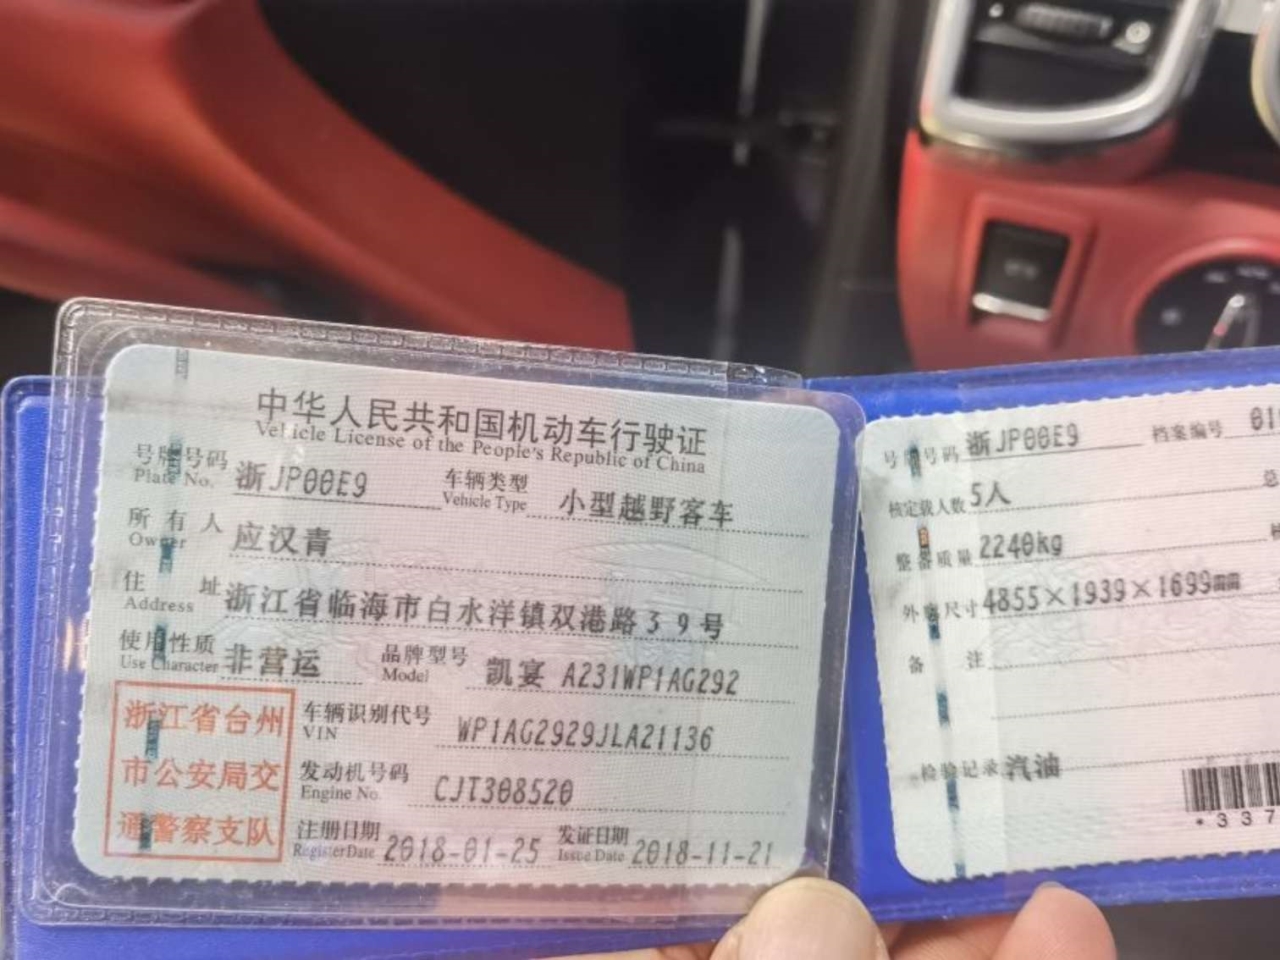 中华人民共和国机动车行驶证
Vehicle License of the People's Republic of China
号牌号码 浙JP00E9 车辆类型 小型越野客车
Plate No. Vehicle Type
所有人 应汉青
Owner
住址 浙江省临海市白水洋镇双港路39号
Address
使用性质 非营运 品牌型号 凯宴 A231WP1AG292
Use Character Model
浙江省台州
市公安局交
通警察支队
车辆识别代号 WP1AG2929JLA21136
VIN
发动机号码 CJT308520
Engine No.
注册日期 2018-01-25 发证日期 2018-11-21
Register Date Issue Date
号牌号码 浙JP00E9 档案编号
核定载人数 5人 总
整备质量 2240kg
外廓尺寸 4855×1939×1699mm
备注
检验记录 汽油
*337